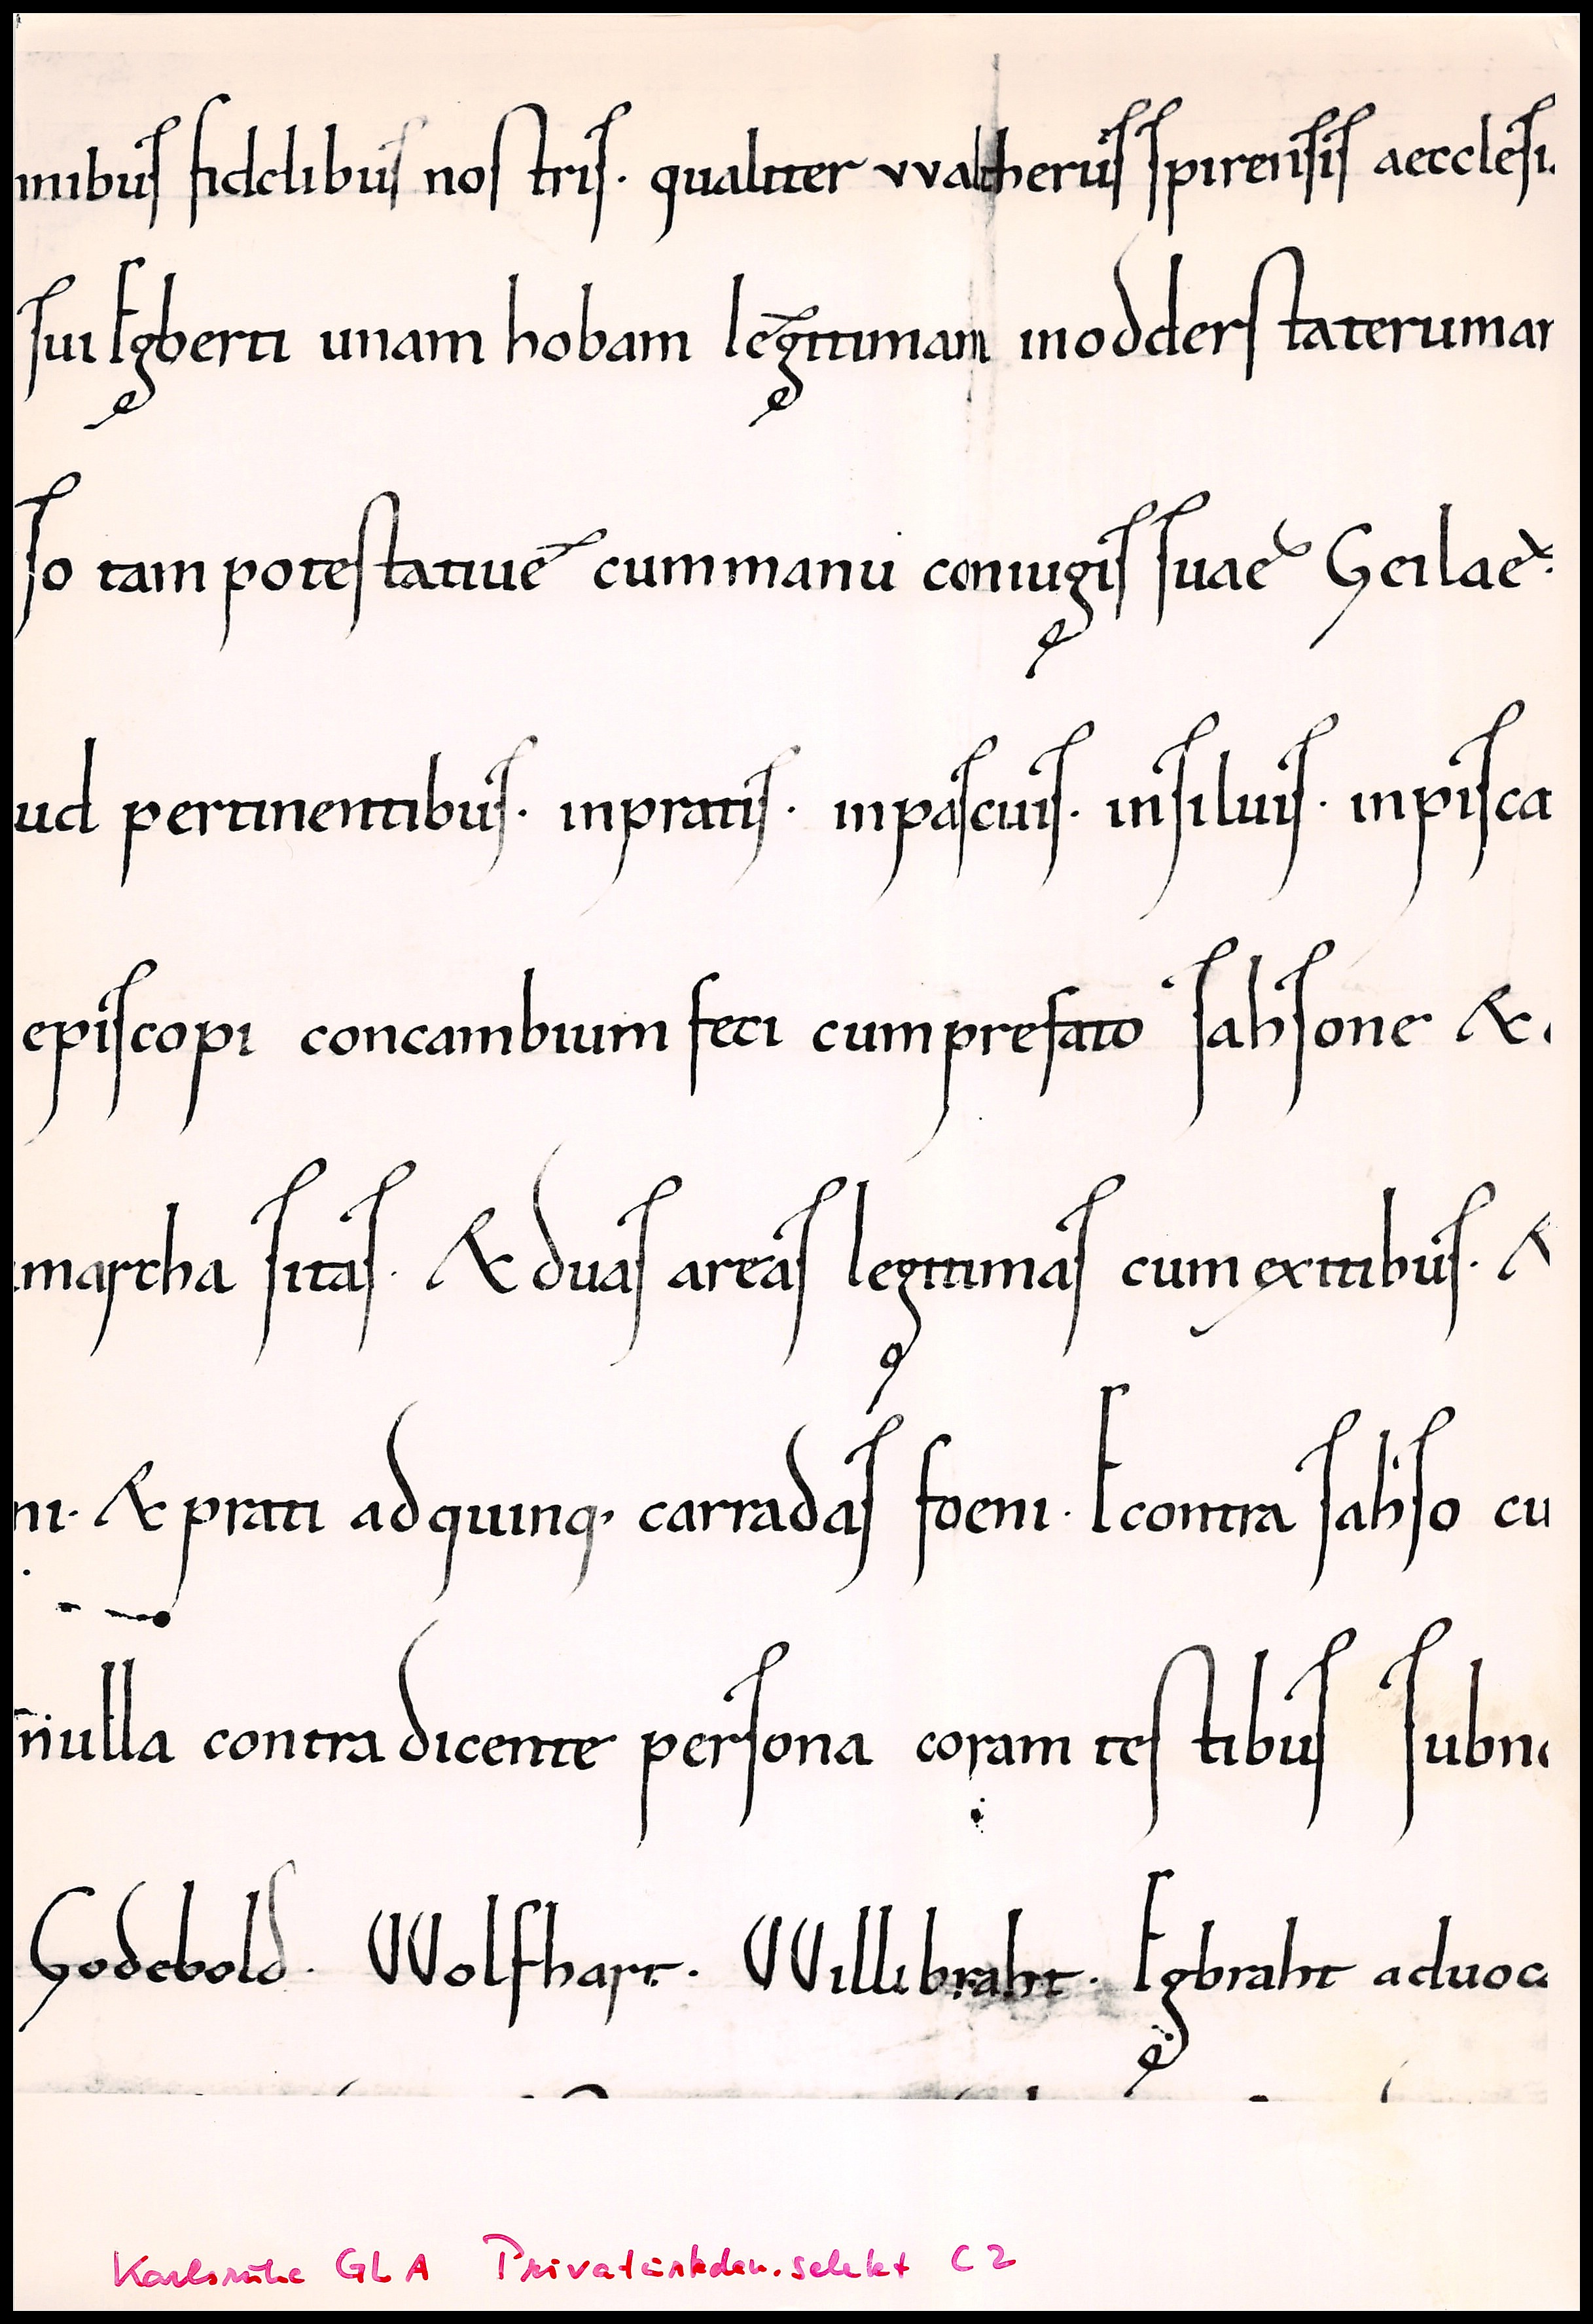 nibus fidelibus nostris. qualiter vvaltherus spirensis aecclesi
sui Egberti unam hobam legitimam inodderstaterumar
so tam potestatiue cummanu coniugis suae Geilae.
ud pertinentibus. inpratis. inpascuis. insiluis. inpisca
episcopi concambium feci cumprefato sahsone &
marcha sitas. & duas areas legitimas cum exitibus. &
ni. & prati adquinq. carradas foeni. Econtra sahso cu
nulla contradicente persona coram testibus subn
Godebold. Wolfhart. Willibraht. Egbraht aduoc
Karlsruhe GLA Privaturkden.selekt C2